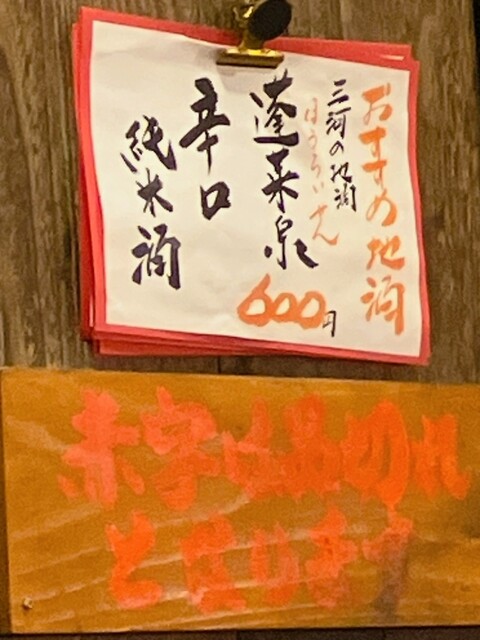 おすすめ地酒
三河の地酒
ほうらいせん
蓬莱泉
600円
辛口
純米酒
赤字は品切れ
となります